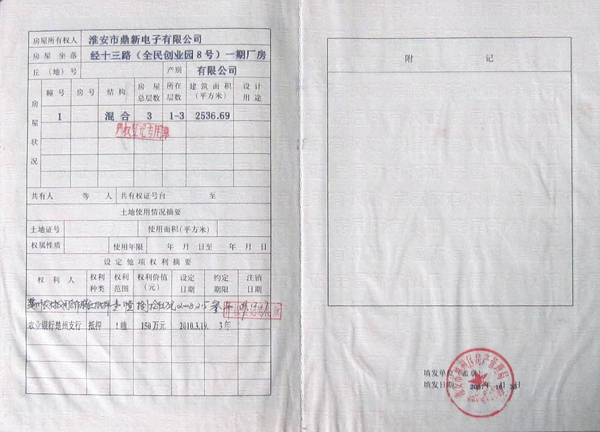 房屋所有权人 淮安市鼎新电子有限公司
房屋坐落 经十三路（全民创业园8号）一期厂房
丘（地）号 产别 有限公司
房屋状况
幢号 房号 结构 房屋总层数 所在层数 建筑面积（平方米） 设计用途
1 混合 3 1-3 2536.69
共有人 等 人 共有权证号自 至
土地使用情况摘要
土地证号 使用面积（平方米）
权属性质 使用年限 年 月 日至 年 月 日
设定他项权利摘要
权利人 权利种类 权利范围 权利价值（元） 设定日期 约定期限 注销日期
农业银行楚州支行 抵押 1幢 150万元 2010.3.19. 3年
附 记
填发单位（盖章）
填发日期： 年 月 日